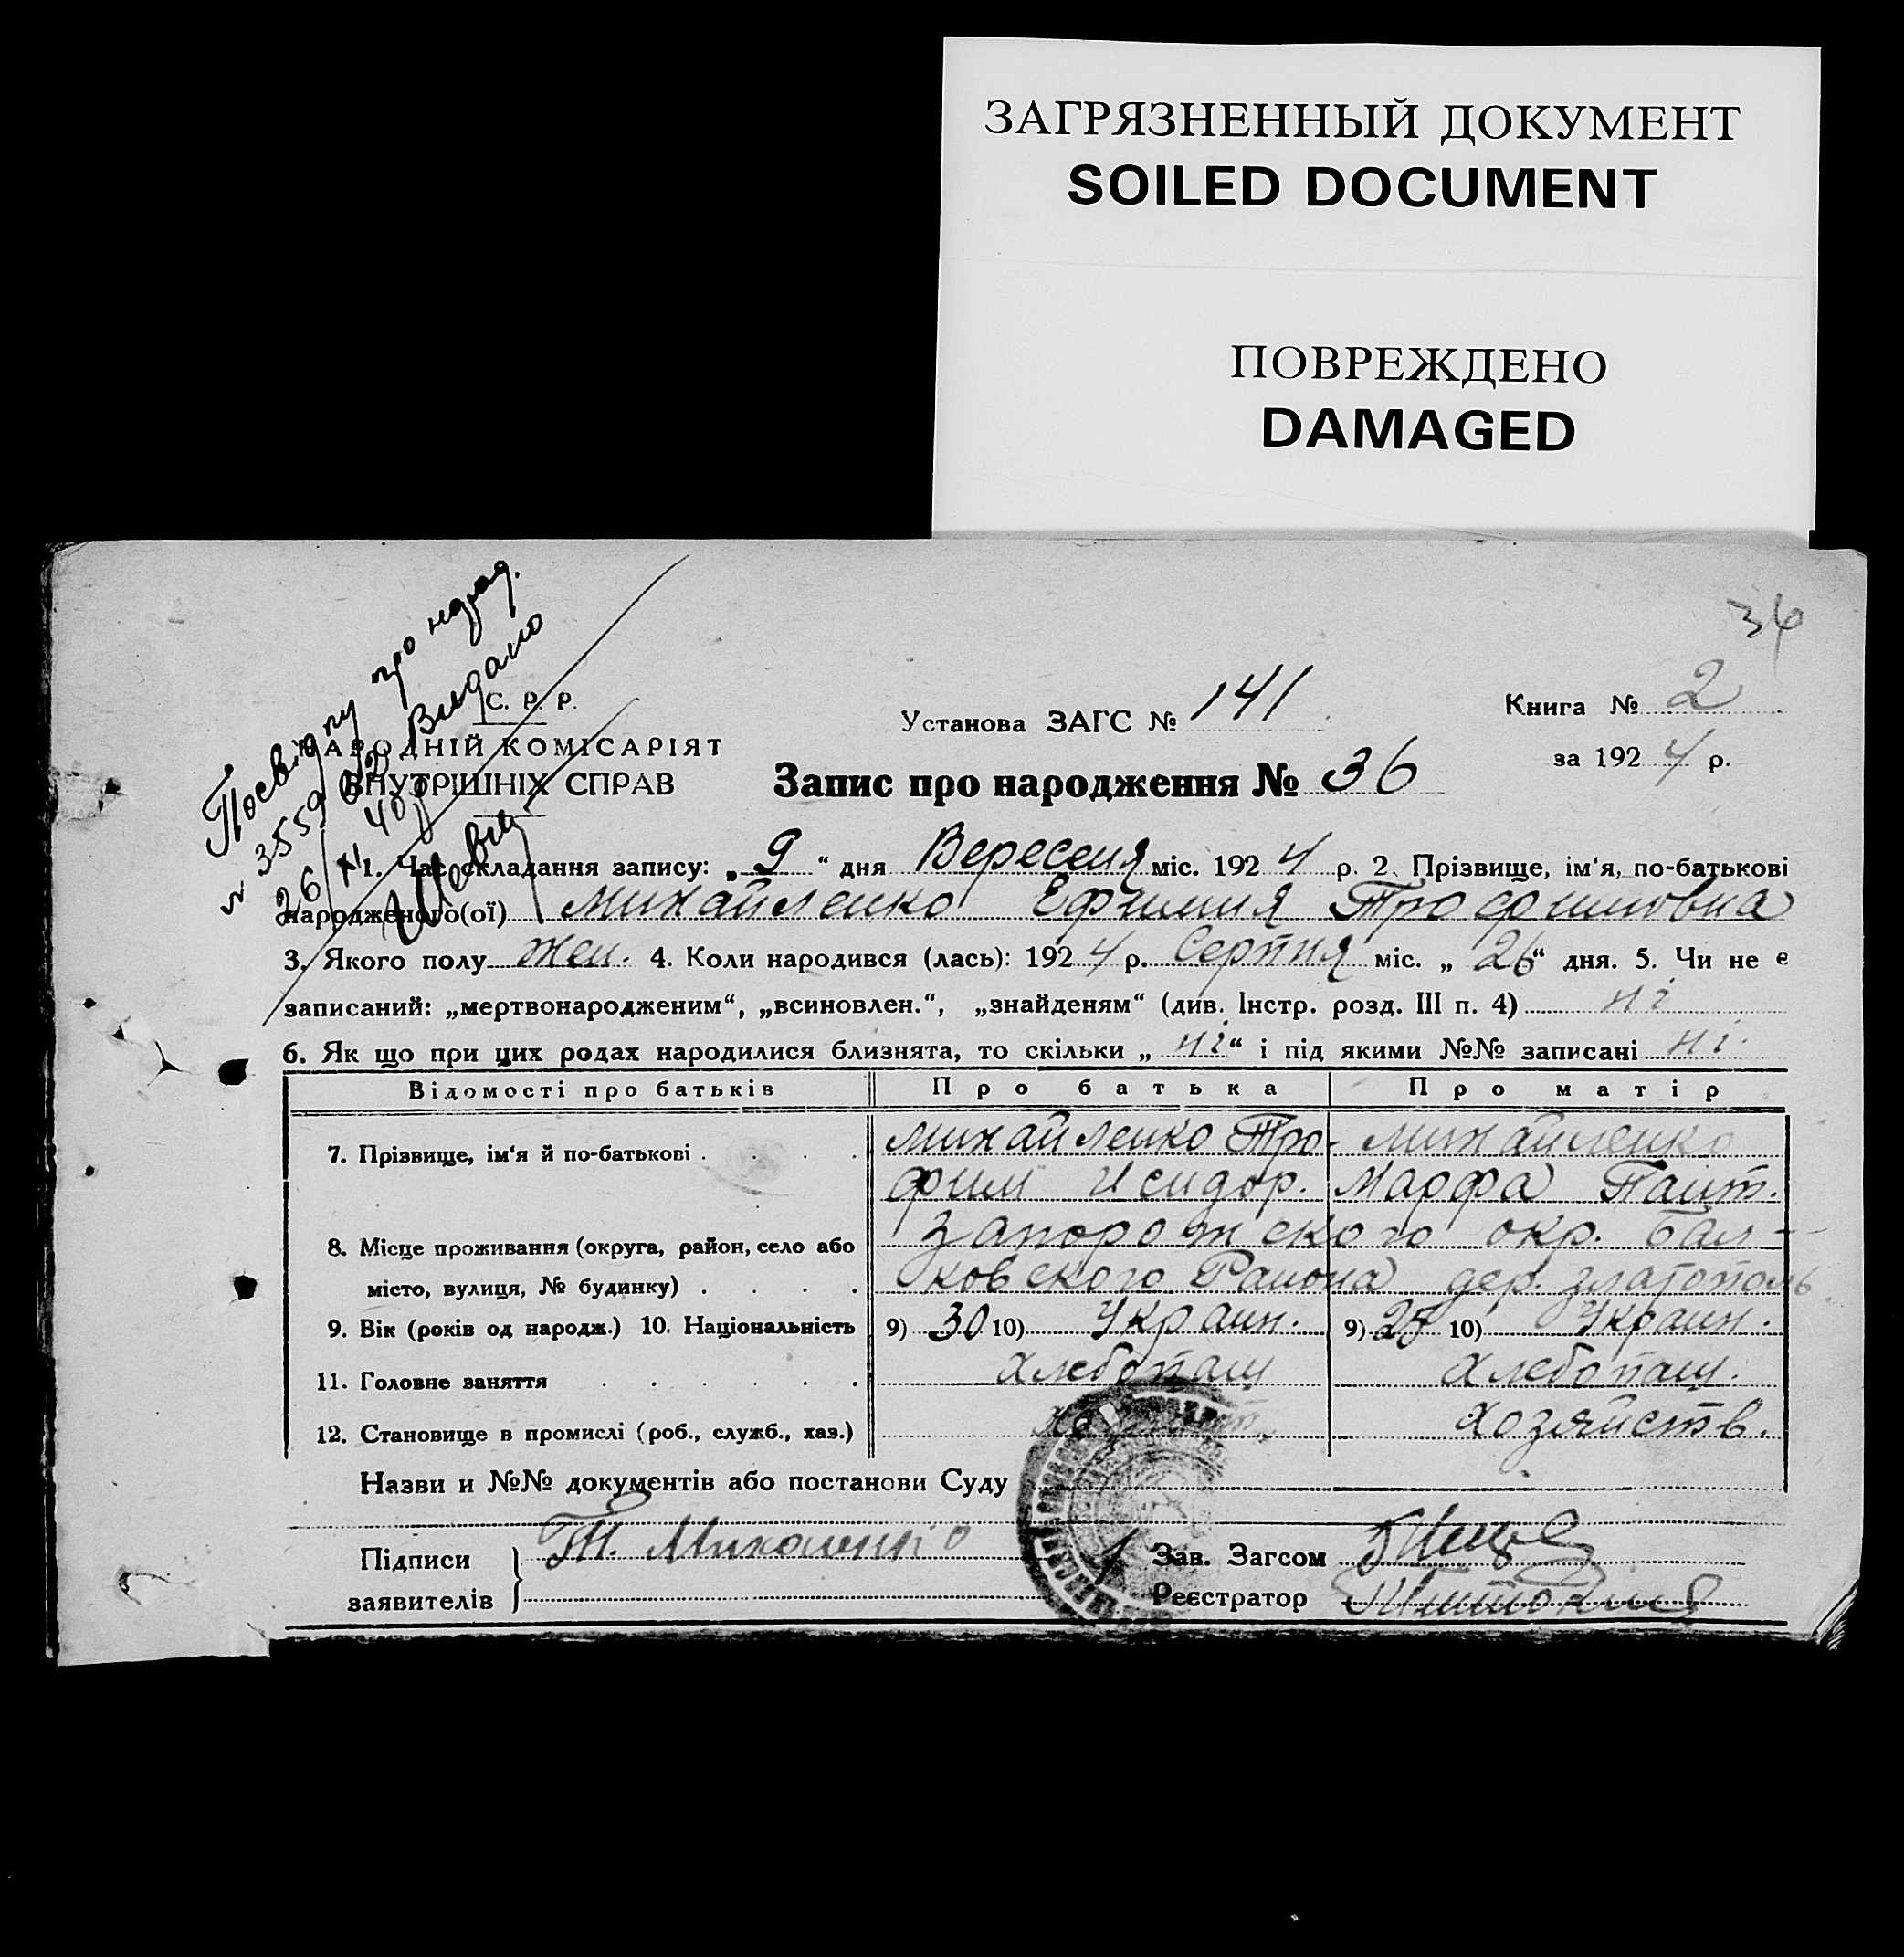 ЗАГРЯЗНЕННЫЙ ДОКУМЕНТ
SOILED DOCUMENT
ПОВРЕЖДЕНО
DAMAGED
36
Посвідку про народ.
№ 3559 Видано
26/VI 40р
С. Р. Р.
НАРОДНІЙ КОМІСАРІЯТ
ВНУТРІШНІХ СПРАВ
Установа ЗАГС № 141
Книга № 2
за 1924 р.
Запис про народження № 36
1. Час складання запису: „9“ дня Вересеня міс. 1924 р. 2. Прізвище, ім‘я, по-батькові
народженого(ої) Михайленко Ефимия Трофимовна
3. Якого полу жен. 4. Коли народився (лась): 1924 р. Серпня міс. „26“ дня. 5. Чи не є
записаний: „мертвонародженим“, „всиновлен.“, „знайденям“ (див. Інстр. розд. III п. 4) ні
6. Як що при цих родах народилися близнята, то скільки „ні“ і під якими №№ записані ні.
Відомості про батьків Про батька Про матір
7. Прізвище, ім‘я й по-батькові . . . . Михайленко Тро- Михайленко
фим Исидор. Марфа Пант.
8. Місце проживання (округа, район, село або Запорожского окр. Бал-
місто, вулиця, № будинку) . . . . ковского Района дер. Златополь
9. Вік (років од народж.) 10. Національність 9) 30 10) Украин. 9) 25 10) Украин.
11. Головне заняття . . . . . . Хлебопащ Хлебопащ.
12. Становище в промислі (роб., служб., хаз.) Хозяйств.
Назви и №№ документів або постанови Суду
Підписи
заявителів
Зав. Загсом
Реєстратор